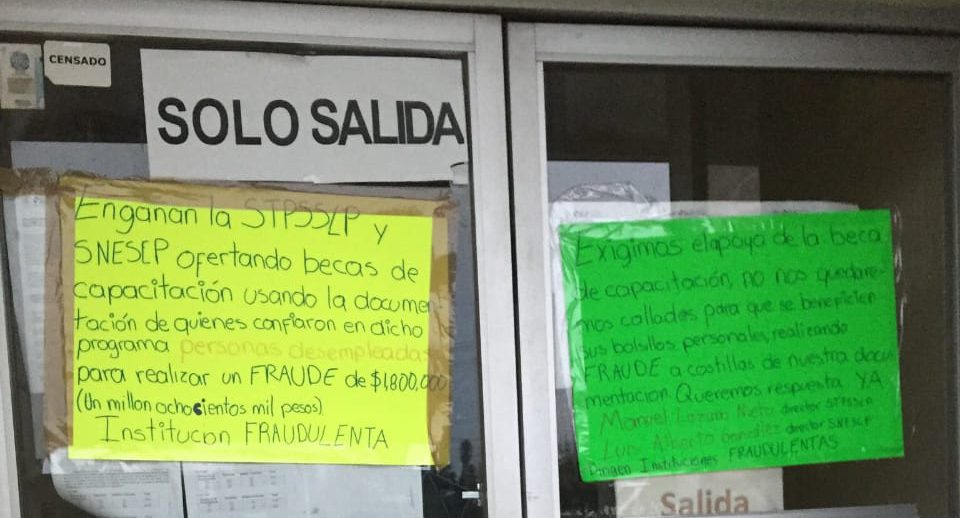 CENSADO
SOLO SALIDA
Enganan la STPSSLP y
SNESLP ofertando becas de
capacitación usando la documen
tación de quienes confiaron en dicho
programa personas desempleadas
para realizar un FRAUDE de $1,800,000
(Un millon ochocientos mil pesos)
Institucion FRAUDULENTA
Exigimos el apoyo de la beca
de capacitación, no nos quedare-
mos callados para que se beneficien
sus bolsillos personales, realizando
FRAUDE a costillas de nuestra docu
mentacion. Queremos respuesta YA
Manuel Lozano Nieto director STPSSLP
Luis Alberto González director SNESLP
Dirigen Instituciones FRAUDULENTAS
Salida